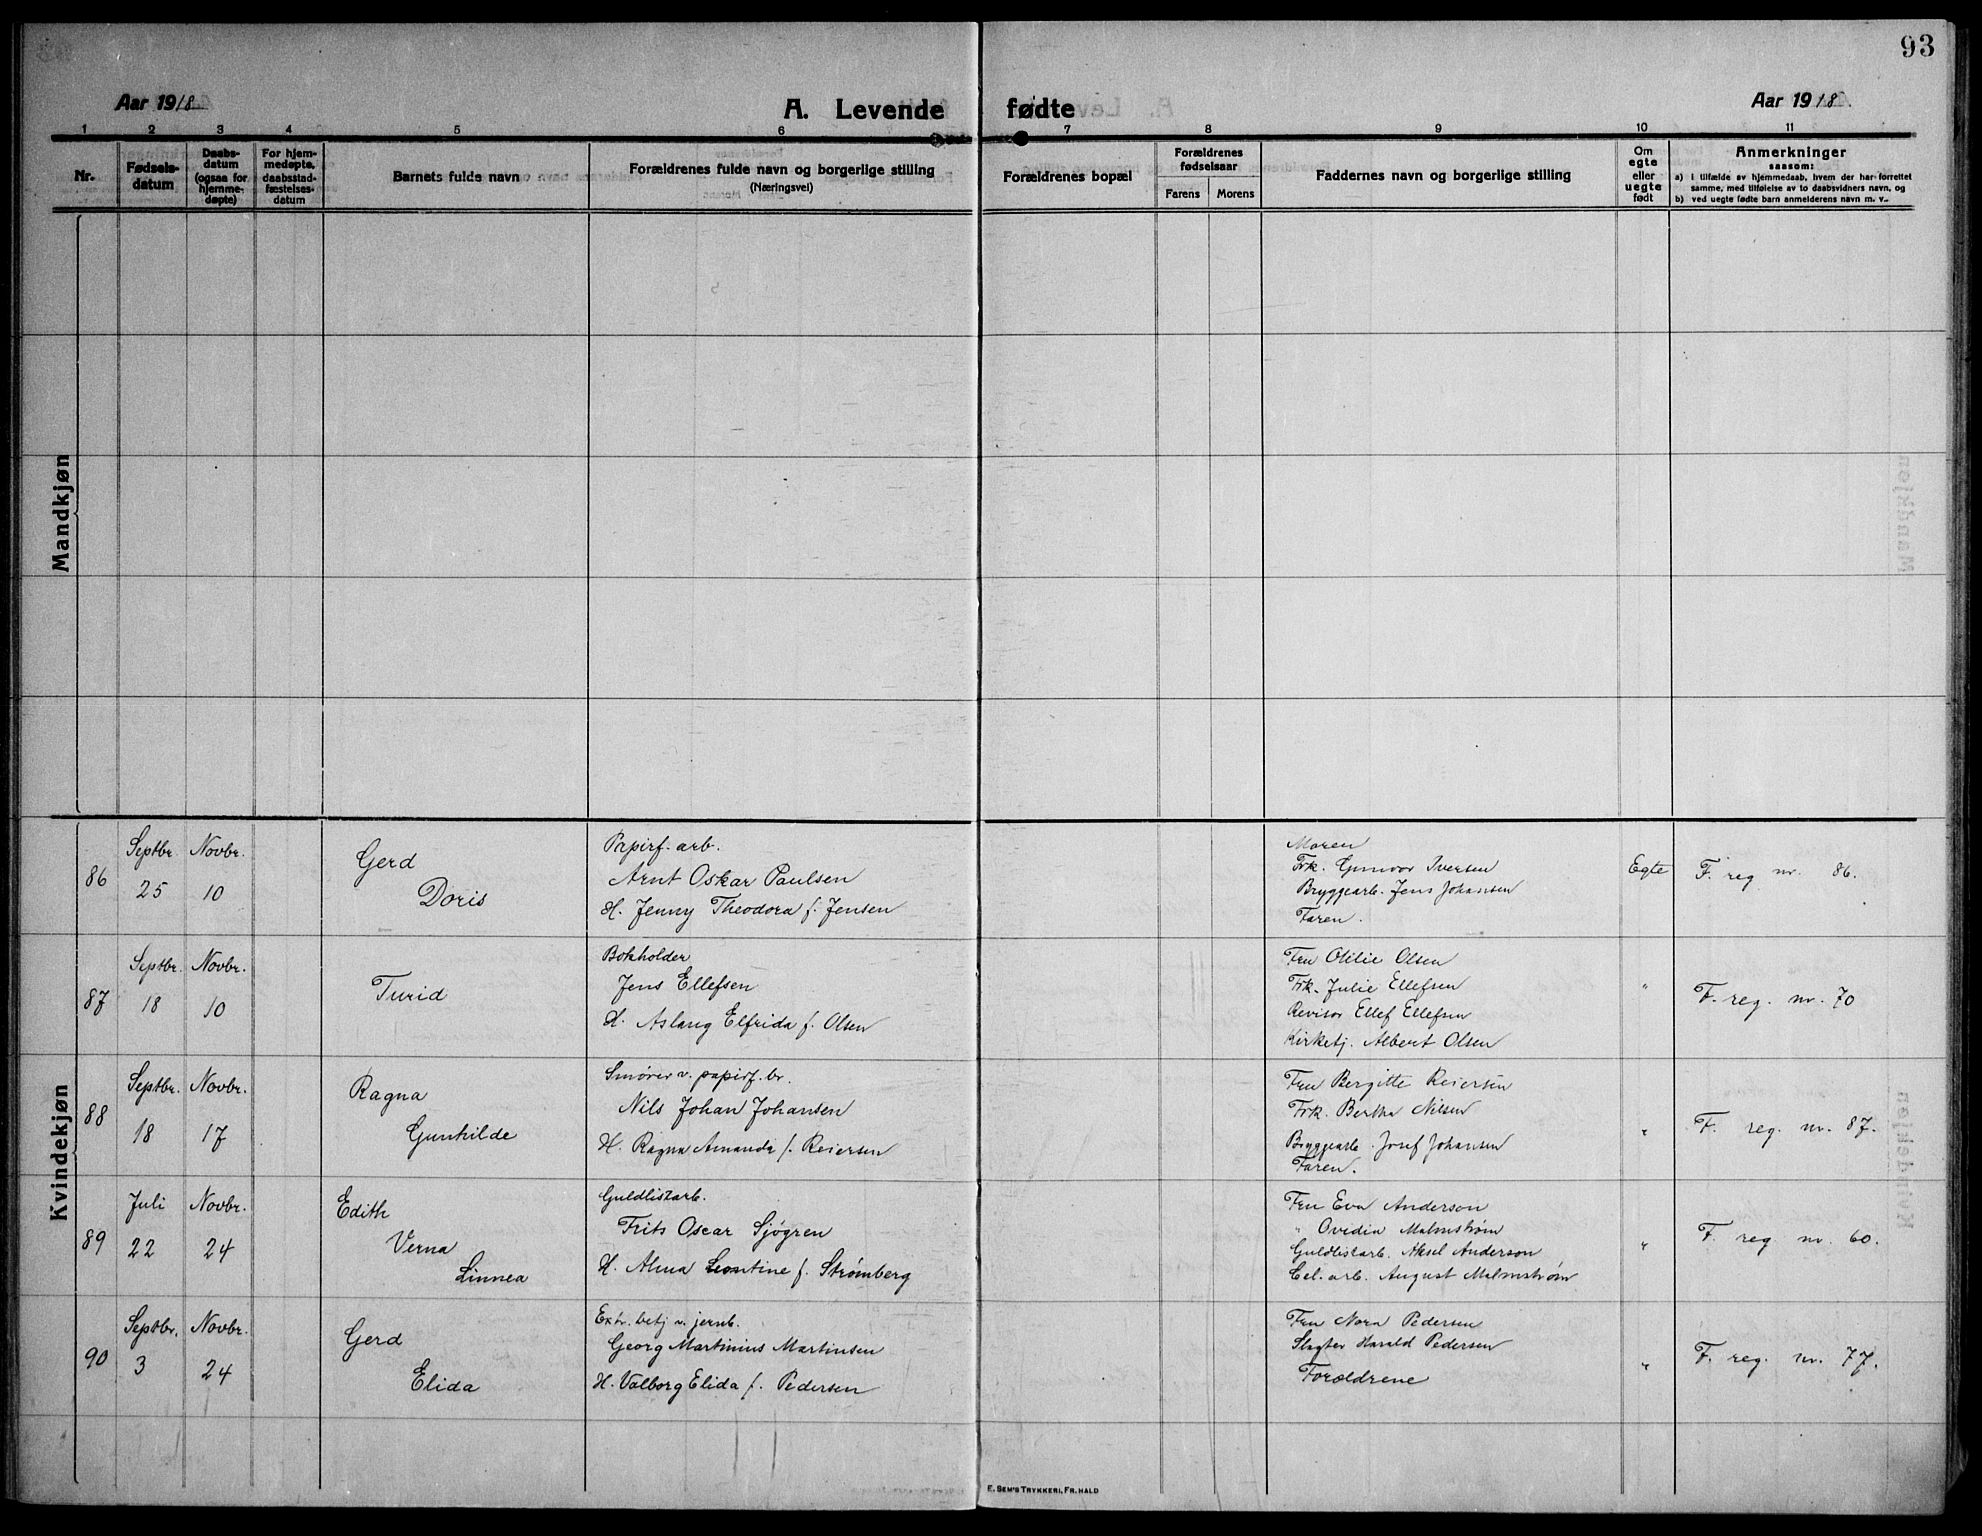 93
Aar 1918
A. Levende fødte
Aar 1918.
1 2 3 4 5 6 7 8 9 10 11
Nr.
Fødsels-
datum
Daabs-
datum
(ogsaa for
hjemme-
døpte)
For hjem-
medøpte,
daabsstad-
fæstelses-
datum
Barnets fulde navn
Forældrenes fulde navn og borgerlige stilling
(Næringsvei)
Forældrenes bopæl
Forældrenes
fødselsaar
Farens Morens
Faddernes navn og borgerlige stilling
Om
egte
eller
uegte
født
Anmerkninger
saasom:
a) i tilfælde av hjemmedaab, hvem der har forrettet
samme, med tilføielse av to daabsvidners navn, og
b) ved uegte fødte barn anmelderens navn m. v.
Mandkjøn
Kvindekjøn
86
Septbr. 25
Novbr. 10
Gerd
Doris
Papirf. arb.
Arnt Oskar Paulsen
H. Jenny Theodora f. Jensen
Moren
Frk. Gunvor Iversen
Bryggearb. Jens Johansen
Faren.
Egte
F. reg nr. 86.
87
Septbr. 18
Novbr. 10
Turid
Bokholder
Jens Ellefsen
H. Aslaug Elfrida f. Olsen
Fru Otilie Olsen
Frk. Julie Ellefsen
Revisor Ellef Ellefsen
Kirketj. Albert Olsen
"
F. reg. nr. 70
88
Septbr. 18
Novbr. 17
Ragna
Gunhilde
Smører v. papirf. br.
Nils Johan Johansen
H. Ragna Amanda f. Reiersen
Fru Bergitte Reiersen
Frk. Bertha Nilsen
Bryggearb. Josef Johansen
Faren.
"
F. reg. nr. 87.
89
Juli 22
Novbr. 24
Edith
Verna
Linnea
Guldlistarb.
Frits Oscar Sjøgren
H. Alma Leontine f. Strømberg
Fru Eva Anderson
" Ovidia Malmstrøm
Guldlistarb. Aksel Anderson
Cel. arb. August Malmstrøm
"
F. reg nr. 60.
90
Septbr. 3
Novbr. 24
Gerd
Elida
Extr. betj v. jernb.
Georg Martinius Martinsen
H. Valborg Elida f. Pedersen
Fru Nora Pedersen
Slagter Harald Pedersen
Forældrene
"
F. reg. nr. 77.
E. SEM'S TRYKKERI, FR.HALD